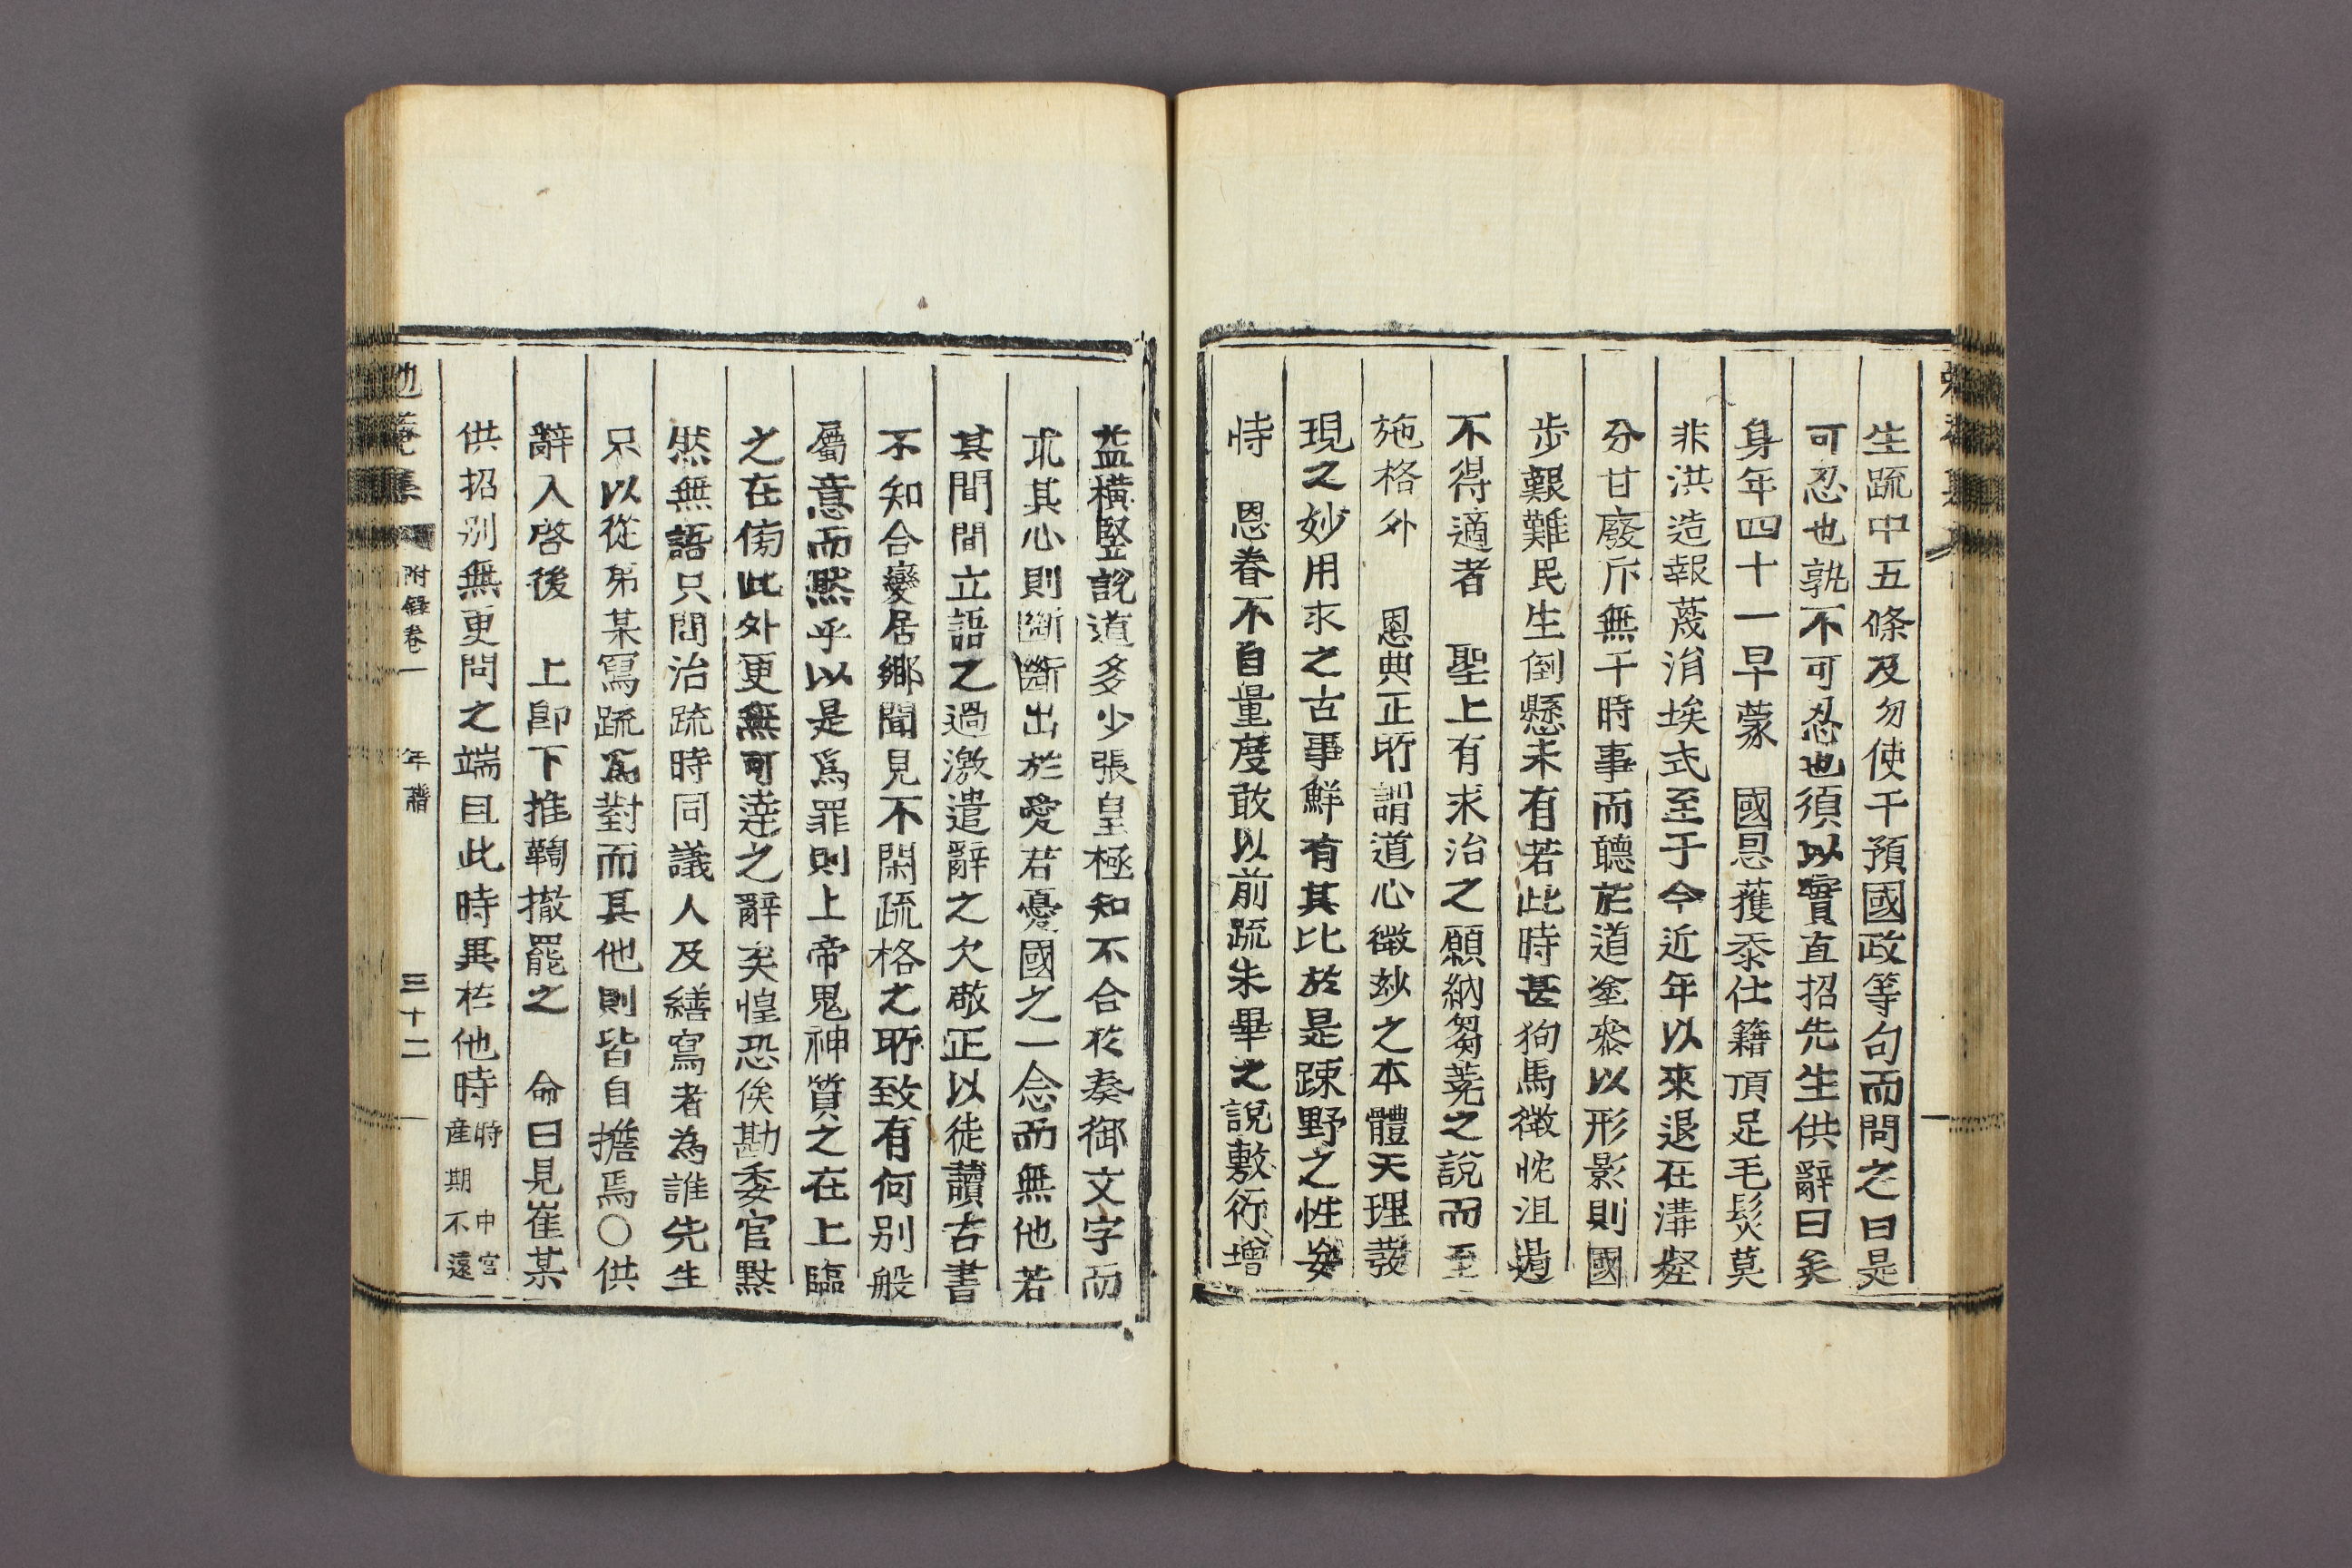 生疏中五條及勿使干預國政等句而問之曰是
可忍也孰不可忍也須以實直招先生供辭曰矣
身年四十一早蒙 國恩蒦忝仕籍頂足毛髮莫
非洪造報蔑涓埃式至于今近年以來退在溝壑
分甘廢斥無干時事而聽於道塗叅以形影則國
步艱難民生倒懸未有若此時甚狗馬微忱沮遏
不得適者 聖上有求治之願納蒭蕘之說而至
施格外 恩典正所謂道心微妙之本體天理發
現之妙用求之古事鮮有其比於是踈野之性妄
恃 恩眷不自量度敢以前疏未畢之說敷衍增
益橫竪說道多少張皇極知不合於奏御文字而
求其心則斷斷出於愛君憂國之一念而無他若
其間間立語之過激遣辭之欠敬正以徒讀古書
不知合變居鄉聞見不閑疏格之所致有何別般
屬意而然乎以是爲罪則上帝鬼神質之在上臨
之在傍此外更無可達之辭矣惶恐俟勘委官默
然無語只問治疏時同議人及繕寫者為誰先生
只以從弟某寫疏爲對而其他則皆自擔焉〇供
辭入啓後 上卽下推鞫撤罷之 命曰見崔某
供招別無更問之端且此時異於他時時 中宮
産期不遠
勉菴集 附錄卷一 年譜 三十二